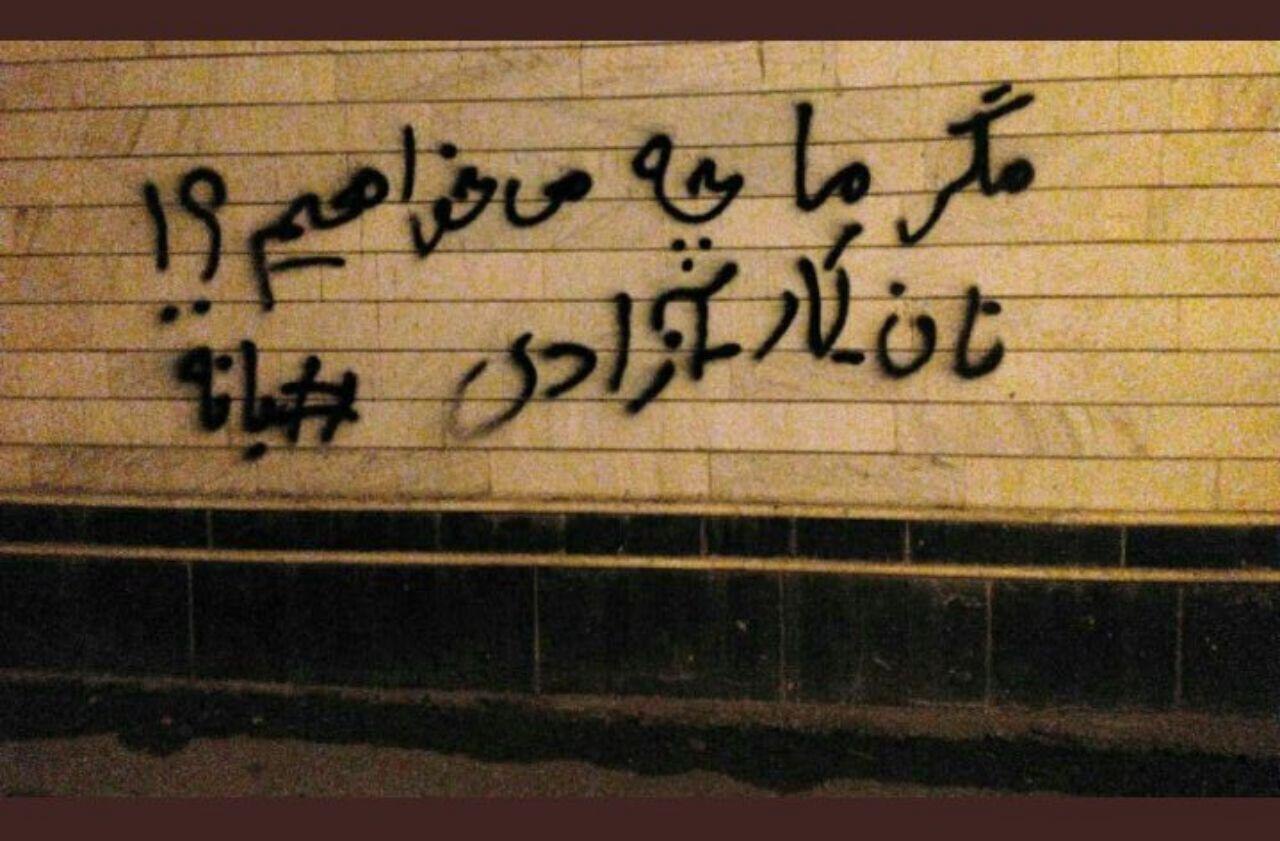 مگر ما چه می‌خواهیم؟!
نان کار آزادی #بانه